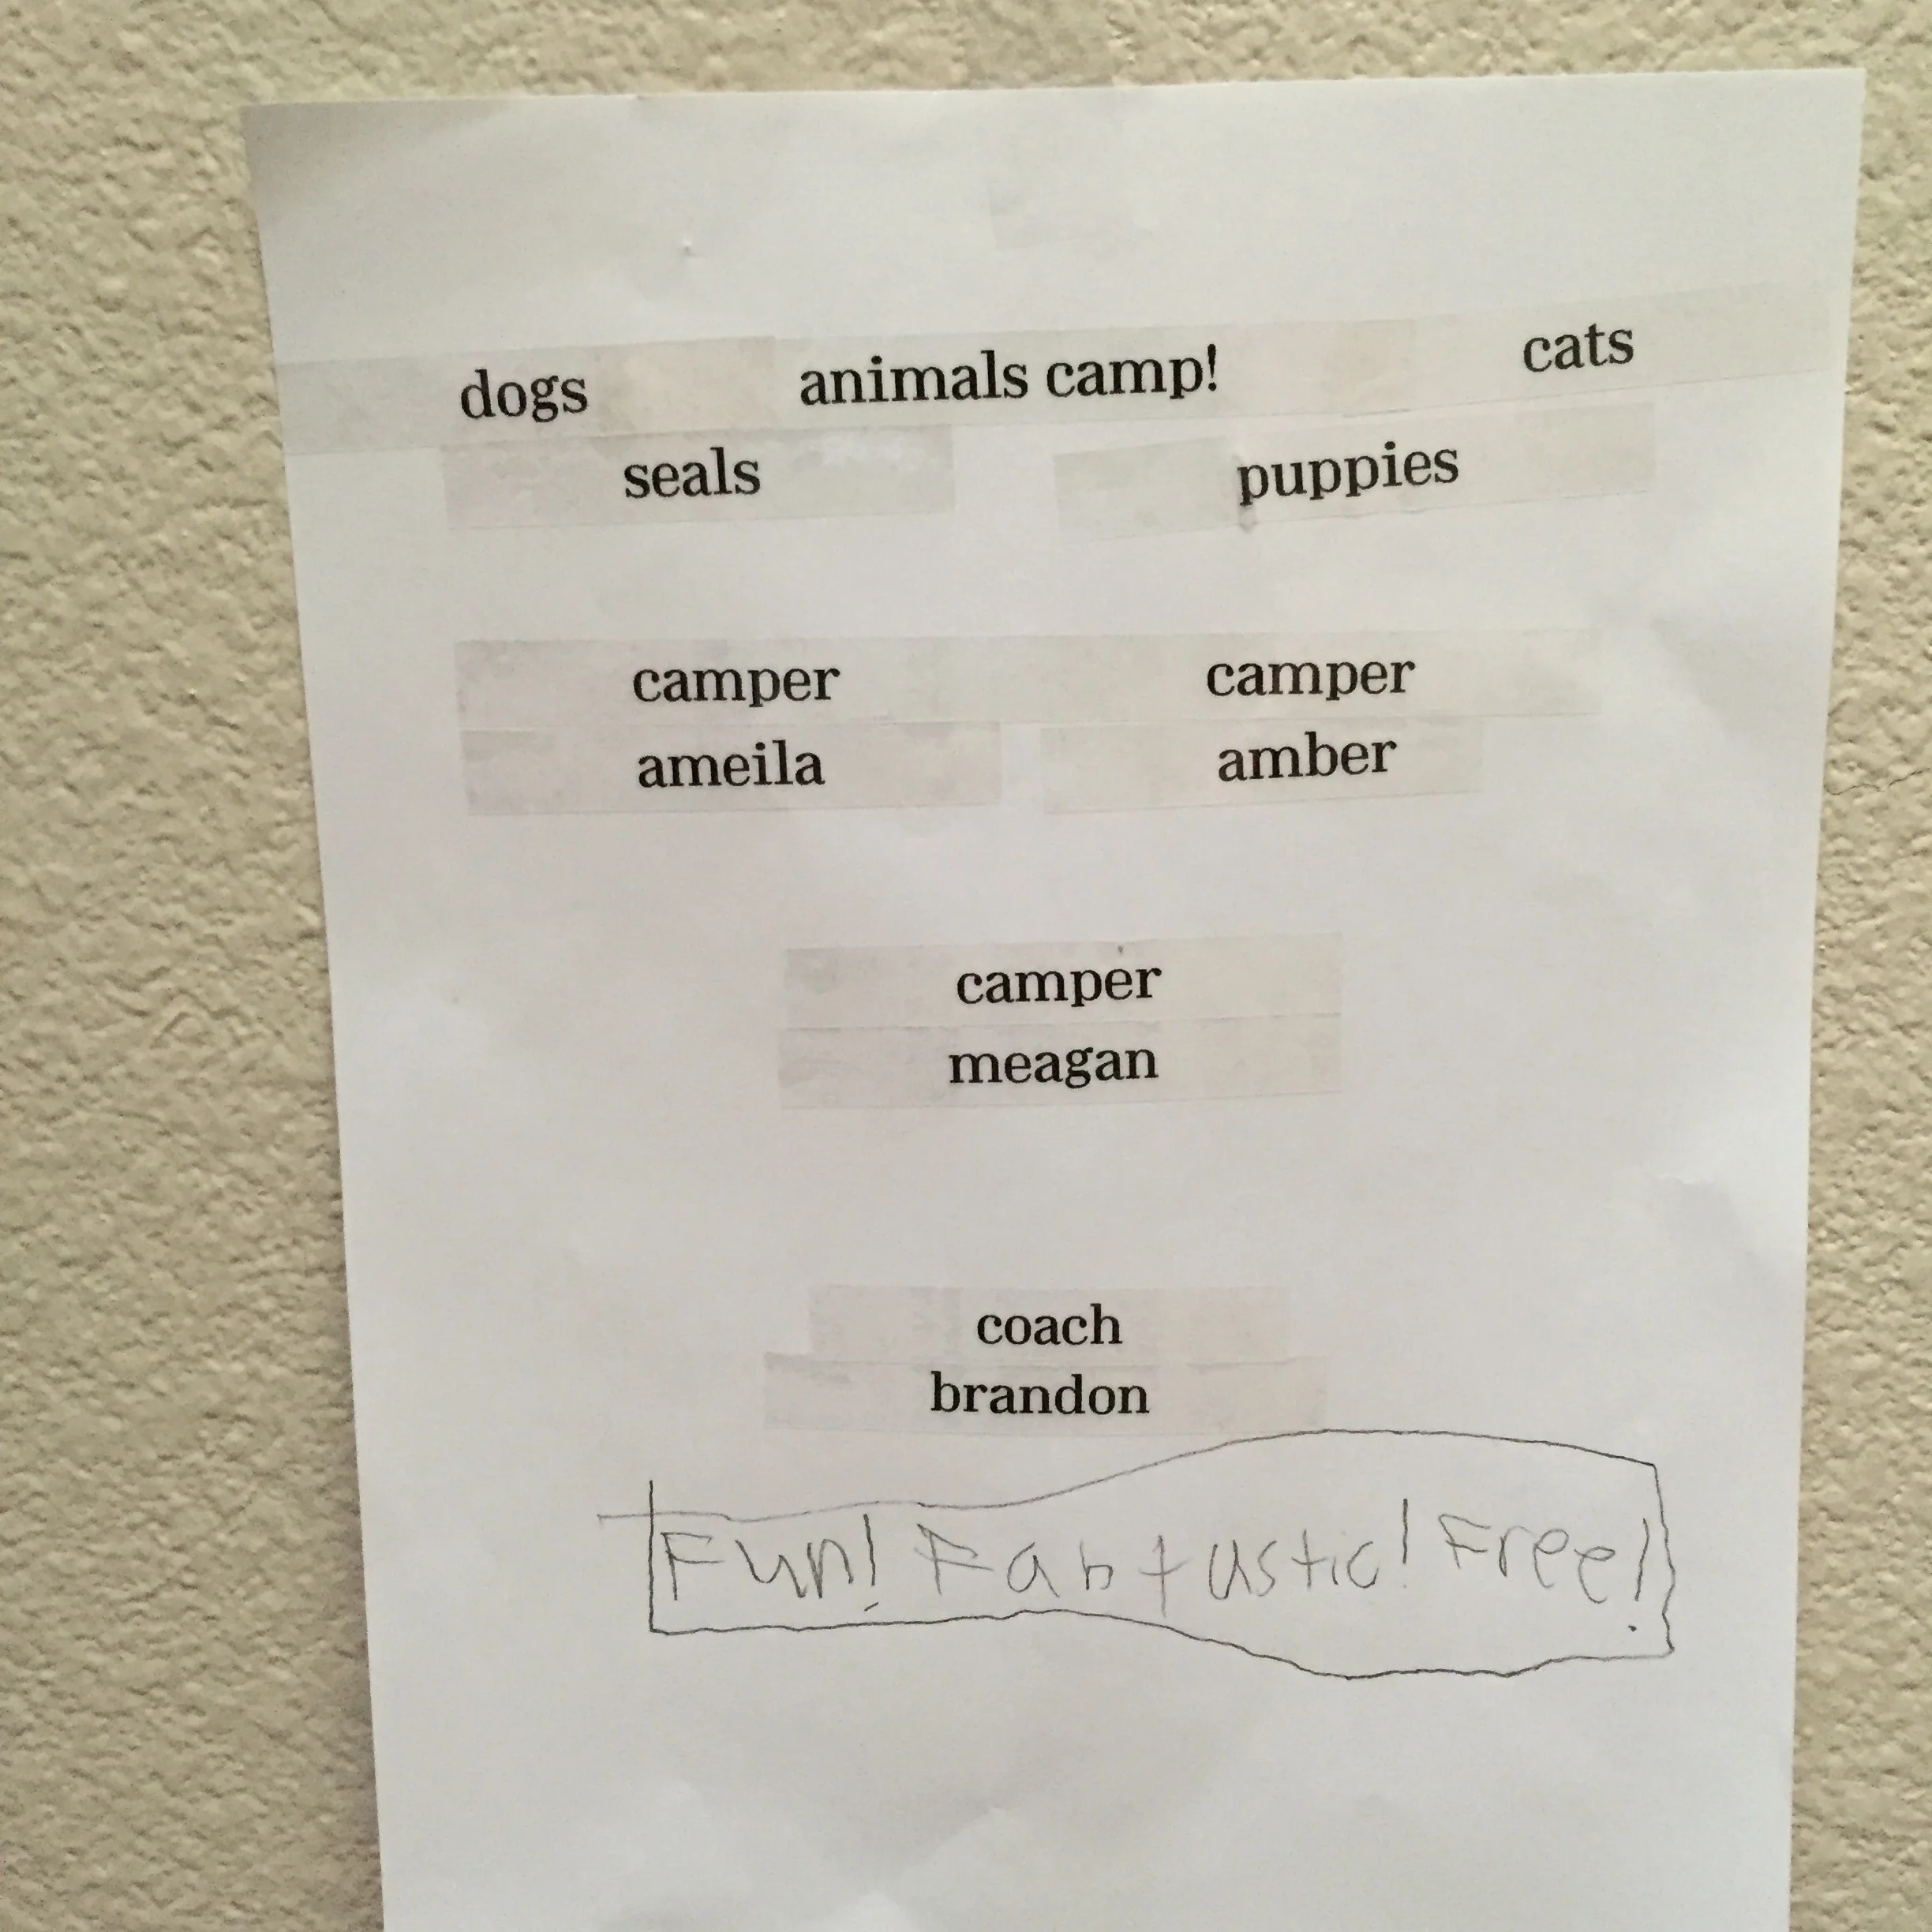 dogs animals camp! cats
seals puppies
camper camper
ameila amber
camper
meagan
coach
brandon
Fun! Fantastic! Free!